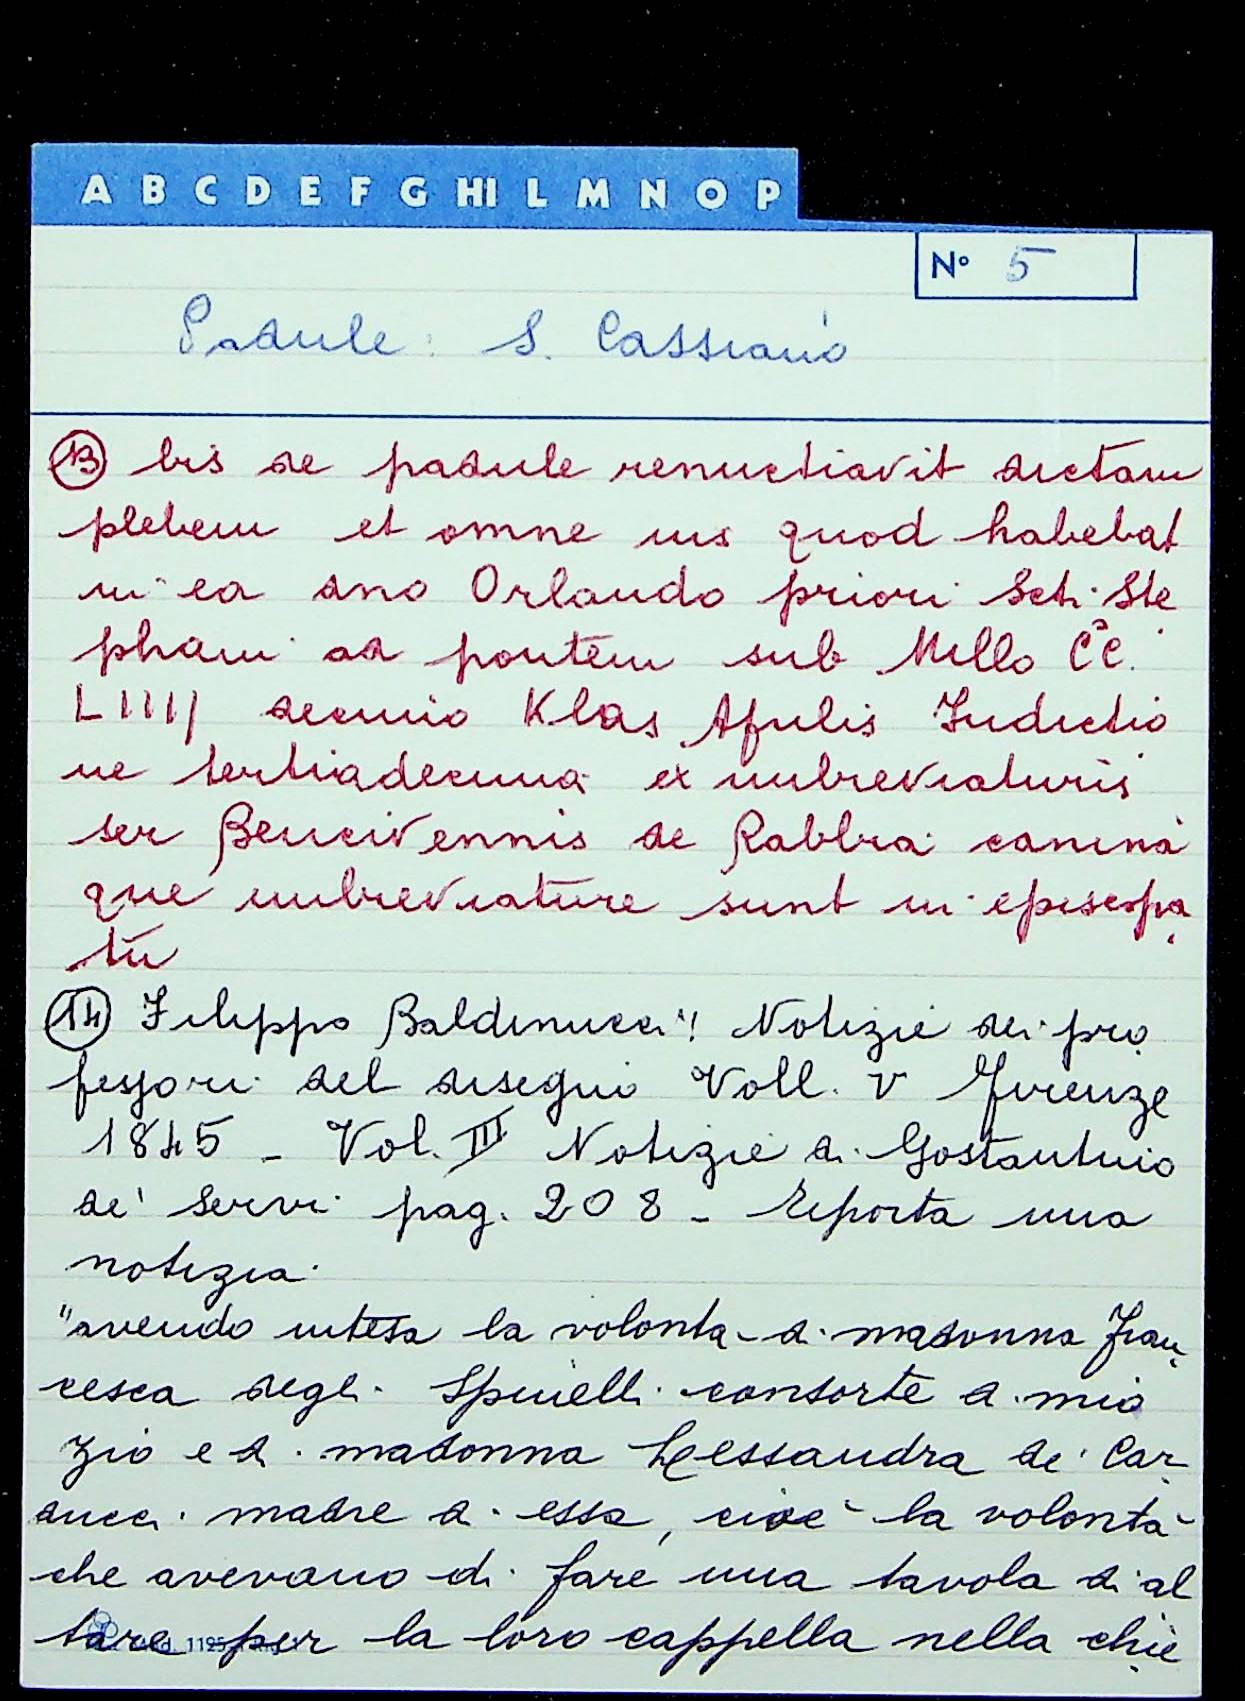 A B C D E F G HI L M N O P
N° 5
Padule: S. Cassiano
13 bis de padule renuctiavit dictam
plebem et omne ius quod habebat
in ea dno Orlando priori Scti. Ste
phani ad pontem sub Millo CC.
LIIII decimo Klas Apulis Indictio
ne tertiadecima ex imbreviaturis
ser Bencivennis de Rabbia canina
que imbreviature sunt in episcopa
tu
14 Filippo Baldinucci: Notizie dei pro
fessori del disegno Voll. V Firenze
1845 - Vol. III Notizie di Gostantino
de' Servi pag. 208 - Riporta una
notizia.
"avendo intesa la volontà di madonna Fran
cesca degli Spinelli consorte di mio
zio e di madonna Lessandra de' Car
ducci madre di essa, cioè la volontà
che avevano di fare una tavola di al
tare per la loro cappella nella chie